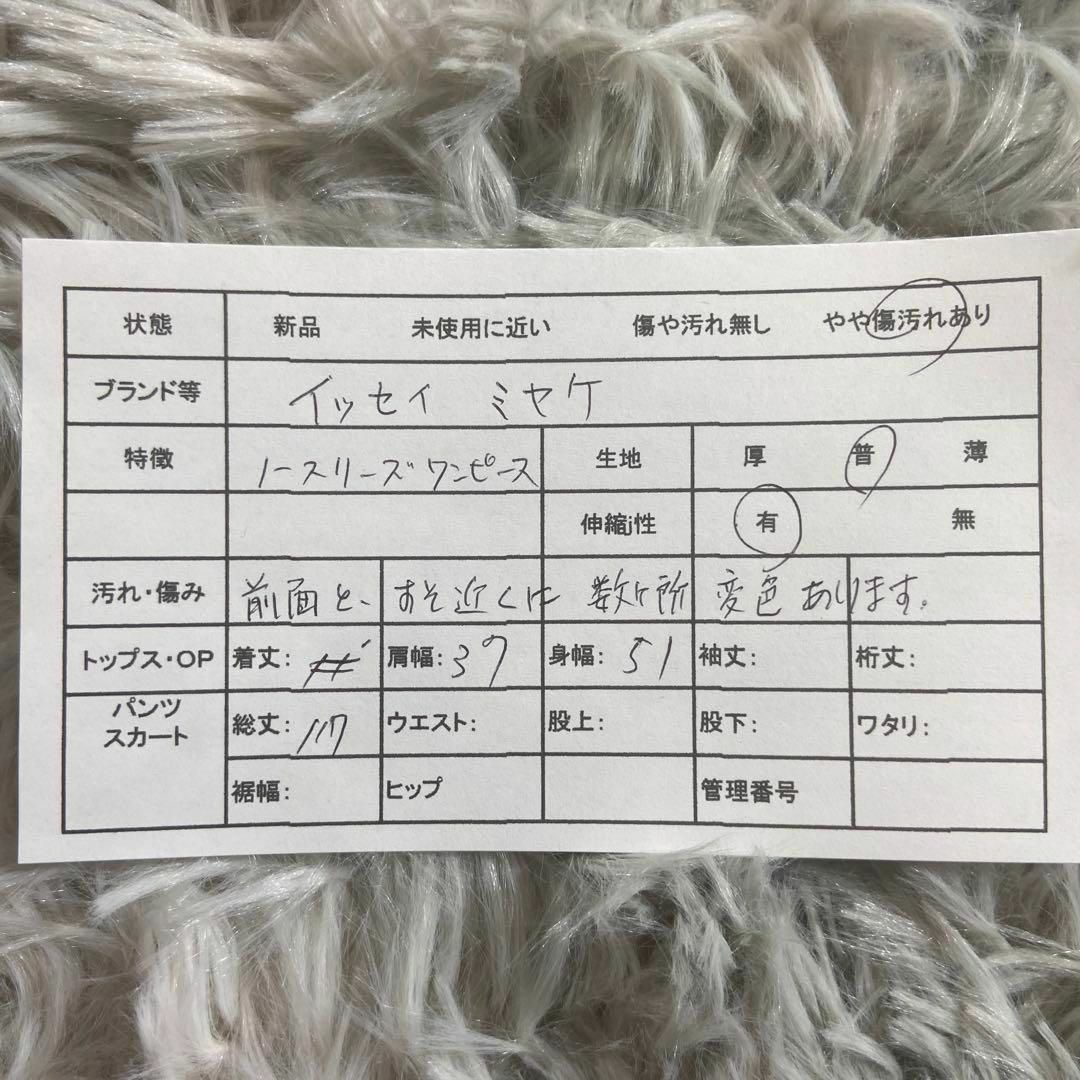 状態 新品 未使用に近い 傷や汚れ無し やや傷汚れあり
ブランド等 イッセイ ミヤケ
特徴 ノースリーズワンピース 生地 厚 普 薄
伸縮j性 有 無
汚れ・傷み 前面と、すそ近くに 数ヶ所 変色あります。
トップス・OP 着丈: 肩幅: 37 身幅: 51 袖丈: 裄丈:
パンツ
スカート 総丈: 117 ウエスト: 股上: 股下: ワタリ:
裾幅: ヒップ 管理番号